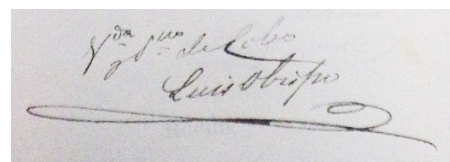 V.da y S.nos de Lobo
Luis Obispo